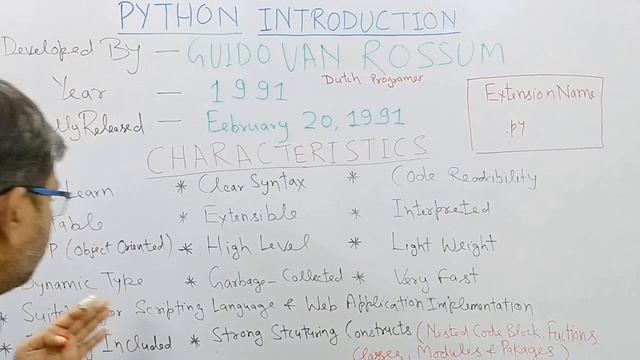 PYTHON INTRODUCTION
Developed By — GUIDO VAN ROSSUM
Dutch Programer
Year — 1991
Released — Eebruary 20, 1991
Extension Name
.py
CHARACTERISTICS
Learn * Clear Syntax * Code Readibility
table * Extensible * Interpreted
P (Object Oriented) * High Level * Light Weight
Dynamic Type * Garbage-Collected * Very Fast
* Scripting Language & Web Application Implementation
* Included * Strong Stcuturing Constructs (Nested Code Block, Fuctions
Classes, Modules & Pakages